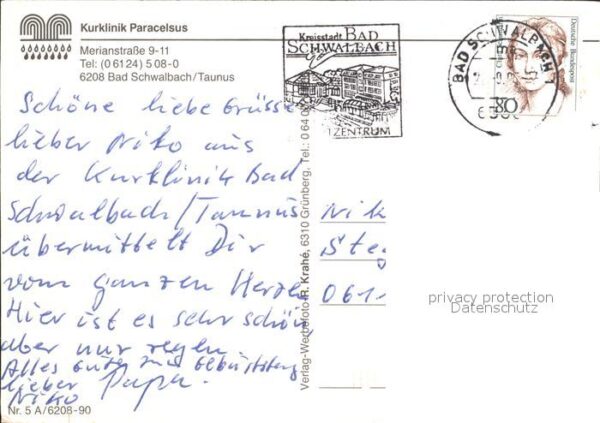 Kurklinik Paracelsus
Merianstraße 9-11
Tel: (0 61 24) 5 08-0
6208 Bad Schwalbach/Taunus
Kreisstadt BAD
SCHWALBACH
ZENTRUM
BAD SCHWALBACH 1
Deutsche Bundespost
80
Schöne liebe Grüsse
lieber Niko aus
der Kurklinik Bad
Schwalbach/Taunus
übermittelt Dir
vom ganzen Herzen
Hier ist es sehr schön
aber nur regen
Alles gute zum Geburtstag
lieber Papa.
Niko
Nik
Steg
061
privacy protection
Datenschutz
Verlag-Werbefoto R. Krahé, 6310 Grünberg, Tel.: 0 64 0
Nr. 5 A/6208-90